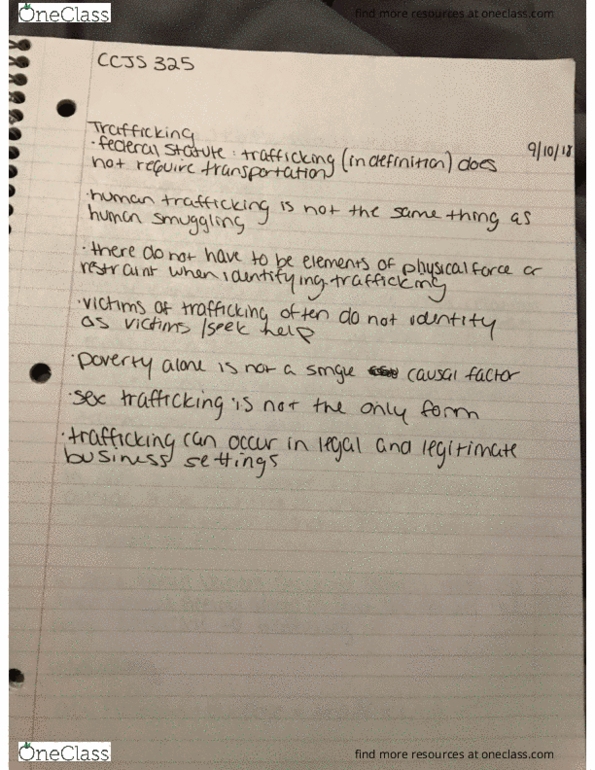 OneClass
find more resources at oneclass.com
CCJS 325
9/10/18
Trafficking
· federal statute: trafficking (in definition) does
not require transportation
· human trafficking is not the same thing as
human smuggling
· there do not have to be elements of physical force or
restraint when identifying trafficking
· victims of trafficking often do not identity
as victims / seek help
· poverty alone is not a single causal factor
· sex trafficking is not the only form
· trafficking can occur in legal and legitimate
business settings
OneClass
find more resources at oneclass.com